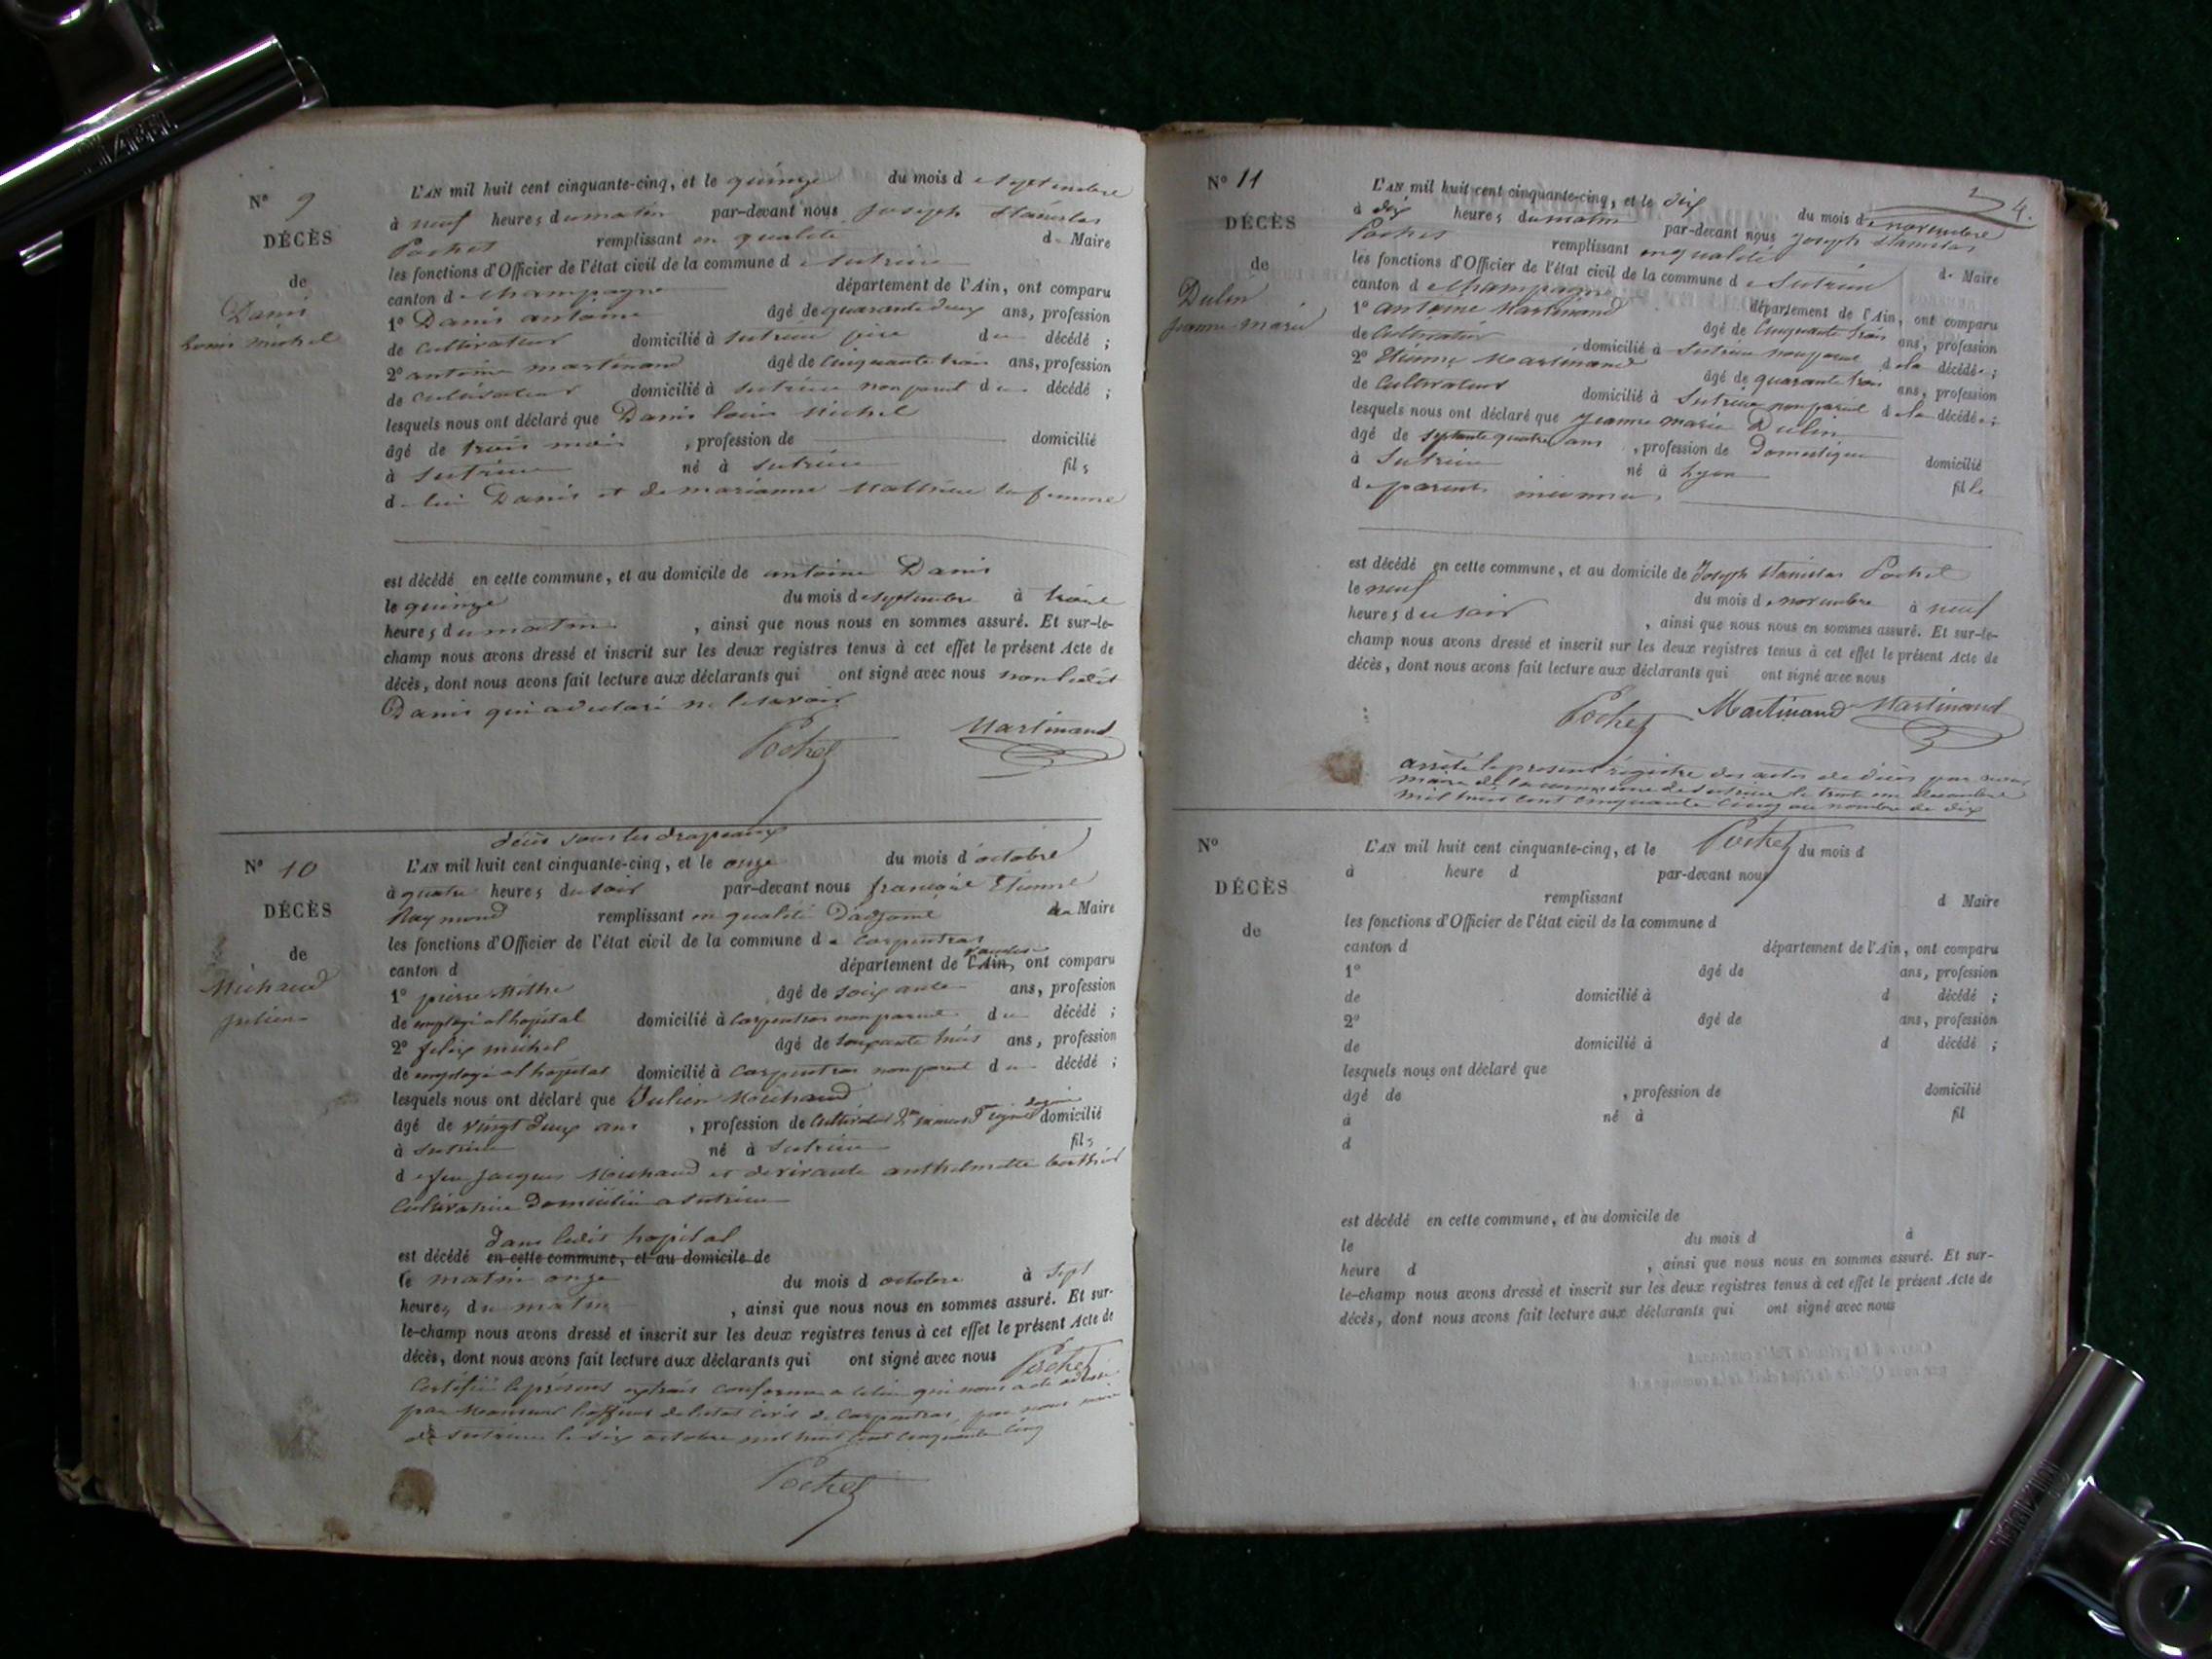 N° 9
DÉCÈS
de
Danis
Louis Michel
L'AN mil huit cent cinquante-cinq, et le quinze du mois de septembre
à neuf heures du matin par-devant nous Joseph Stanislas
Pochet remplissant en qualité de Maire
les fonctions d'Officier de l'état civil de la commune de Sutrieu
canton de Champagne département de l'Ain, ont comparu
1° Danis antoine âgé de quarante deux ans, profession
de Cultivateur domicilié à Sutrieu père du décédé ;
2° antoine martinand âgé de Cinquante trois ans, profession
de Cultivateur domicilié à Sutrieu non parent du décédé ;
lesquels nous ont déclaré que Danis louis Michel
âgé de trois mois , profession de domicilié
à Sutrieu né à Sutrieu fils
de lui Danis et de marianne la femme
est décédé en cette commune, et au domicile de antoine Danis
le quinze du mois de septembre à trois
heures du matin , ainsi que nous nous en sommes assuré. Et sur-le-
champ nous avons dressé et inscrit sur les deux registres tenus à cet effet le présent Acte de
décès, dont nous avons fait lecture aux déclarants qui ont signé avec nous non ledit
Danis qui a déclaré ne le savoir
Pochet Martinand
décès sous les drapeaux
N° 10
DÉCÈS
de
Michaud
julien
L'AN mil huit cent cinquante-cinq, et le onze du mois d'octobre
à quatre heures du soir par-devant nous françois Etienne
Raymond remplissant en qualité D'adjoint du Maire
les fonctions d'Officier de l'état civil de la commune de Carpentras
canton d département de l'Ain, vaucluse ont comparu
1° pierre Mothe âgé de soixante ans, profession
de employé al hopital domicilié à Carpentras non parent du décédé ;
2° felix michel âgé de soixante trois ans, profession
de employé al hopital domicilié à Carpentras non parent du décédé ;
lesquels nous ont déclaré que Julien Michaud
âgé de vingt deux ans , profession de Cultivateur domicilié
à Sutrieu né à Sutrieu fils
de feu Jacques Michaud et de vivante anthelmette
Cultivatrice Domiciliée a Sutrieu
dans ledit hopital
est décédé en cette commune, et au domicile de
le matin onze du mois d octobre à sept
heures du matin , ainsi que nous nous en sommes assuré. Et sur-
le-champ nous avons dressé et inscrit sur les deux registres tenus à cet effet le présent Acte de
décès, dont nous avons fait lecture aux déclarants qui ont signé avec nous Pochet
Certifié le présent extrait conforme a celui qui nous a été adressé
par Monsieur l'officier de l'etat civil de Carpentras, par nous maire
de Sutrieu le dix octobre mil huit cent cinquante cinq
Pochet
4.
N° 11
DÉCÈS
de
Dulin
jeanne marie
L'AN mil huit cent cinquante-cinq, et le dix du mois de novembre
à dix heures du matin par-devant nous Joseph Stanislas
Pochet remplissant en qualité de Maire
les fonctions d'Officier de l'état civil de la commune de Sutrieu
canton de Champagne département de l'Ain, ont comparu
1° antoine Martinand âgé de Cinquante trois ans, profession
de Cultivateur domicilié à Sutrieu non parent de la décédée ;
2° Etienne Martinand âgé de quarante trois ans, profession
de Cultivateur domicilié à Sutrieu non parent de la décédée ;
lesquels nous ont déclaré que Jeanne marie Dulin
âgé de septante quatre ans , profession de Domestique domicilié
à Sutrieu né à Lyon fille
de parents inconnus
est décédé en cette commune, et au domicile de Joseph Stanislas Pochet
le neuf du mois de novembre à neuf
heures du soir , ainsi que nous nous en sommes assuré. Et sur-le-
champ nous avons dressé et inscrit sur les deux registres tenus à cet effet le présent Acte de
décès, dont nous avons fait lecture aux déclarants qui ont signé avec nous
Pochet Martinand Martinand
arrêté le present régistre des actes de décès par nous
maire de la commune de Sutrieu le trente un decembre
mil huit cent cinquante cinq au nombre de dix
Pochet
N°
DÉCÈS
de
L'AN mil huit cent cinquante-cinq, et le du mois d
à heure d par-devant nous
remplissant d Maire
les fonctions d'Officier de l'état civil de la commune d
canton d département de l'Ain, ont comparu
1° âgé de ans, profession
de domicilié à d décédé ;
2° âgé de ans, profession
de domicilié à d décédé ;
lesquels nous ont déclaré que
âgé de , profession de domicilié
à né à fil
d
est décédé en cette commune, et au domicile de
le du mois d à
heure d , ainsi que nous nous en sommes assuré. Et sur-
le-champ nous avons dressé et inscrit sur les deux registres tenus à cet effet le présent Acte de
décès, dont nous avons fait lecture aux déclarants qui ont signé avec nous